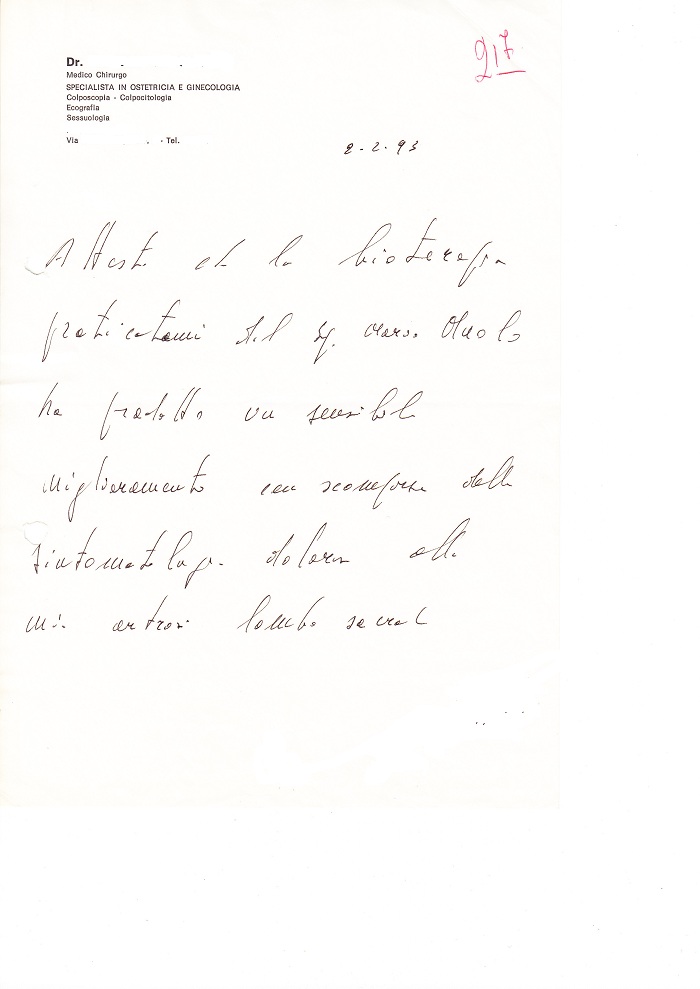 217
Dr.
Medico Chirurgo
SPECIALISTA IN OSTETRICIA E GINECOLOGIA
Colposcopia - Colpocitologia
Ecografia
Sessuologia
Via - Tel.
2-2-93
Attesto che la bioterapia
praticatami dal Sig.
ha prodotto un sensibile
miglioramento con scomparsa della
sintomatologia dolorosa alla
mia artrosi lombo sacrale